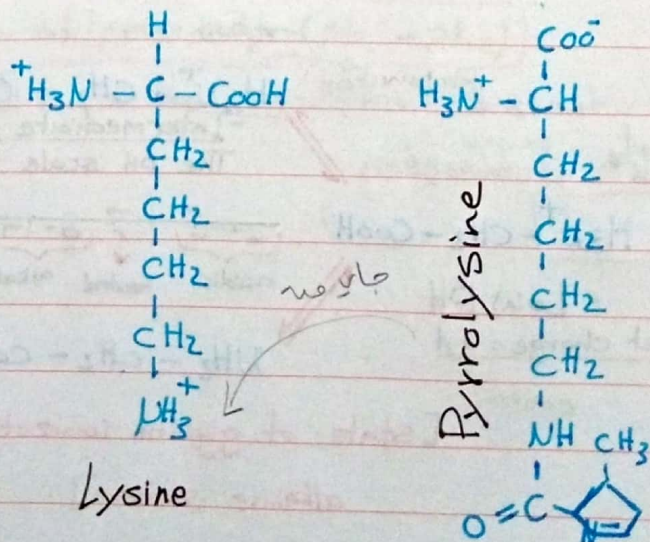 H
⁺H₃N – C – COOH
CH₂
CH₂
CH₂
CH₂
NH₃⁺
Lysine
COO⁻
H₃N⁺ – CH
CH₂
CH₂
CH₂
CH₂
NH CH₃
O=C
N
Pyrrolysine